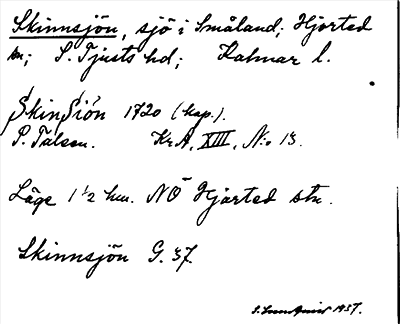 Skinnsjön, sjö i Småland; Hjorted
sn; S. Tjusts hd; Kalmar l.
SkinSiön 1720 (kop.).
P. Tälsen. KrA, XIII, N:o 13.
Läge 1 1/2 km. NÖ Hjorted stn.
Skinnsjön G. 37.
S. 1937.